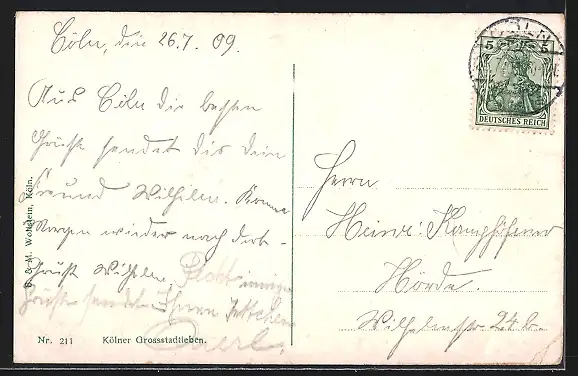 Cöln, den 26.7.09.
Aus Cöln die besten
Grüße sendet dir dein
Freund Wilhelm. Komme
Morgen wieder nach dort.
Gruß Wilhelm.
Grüße sendet Ihnen
Carl.
Nr. 211 Kölner Grossstadtleben.
B. & M. Wohlstein, Köln.
5 5
DEUTSCHES REICH
Herrn
Heinr. Kamphöfener
Hörde.
Wilhelmstr 24b.